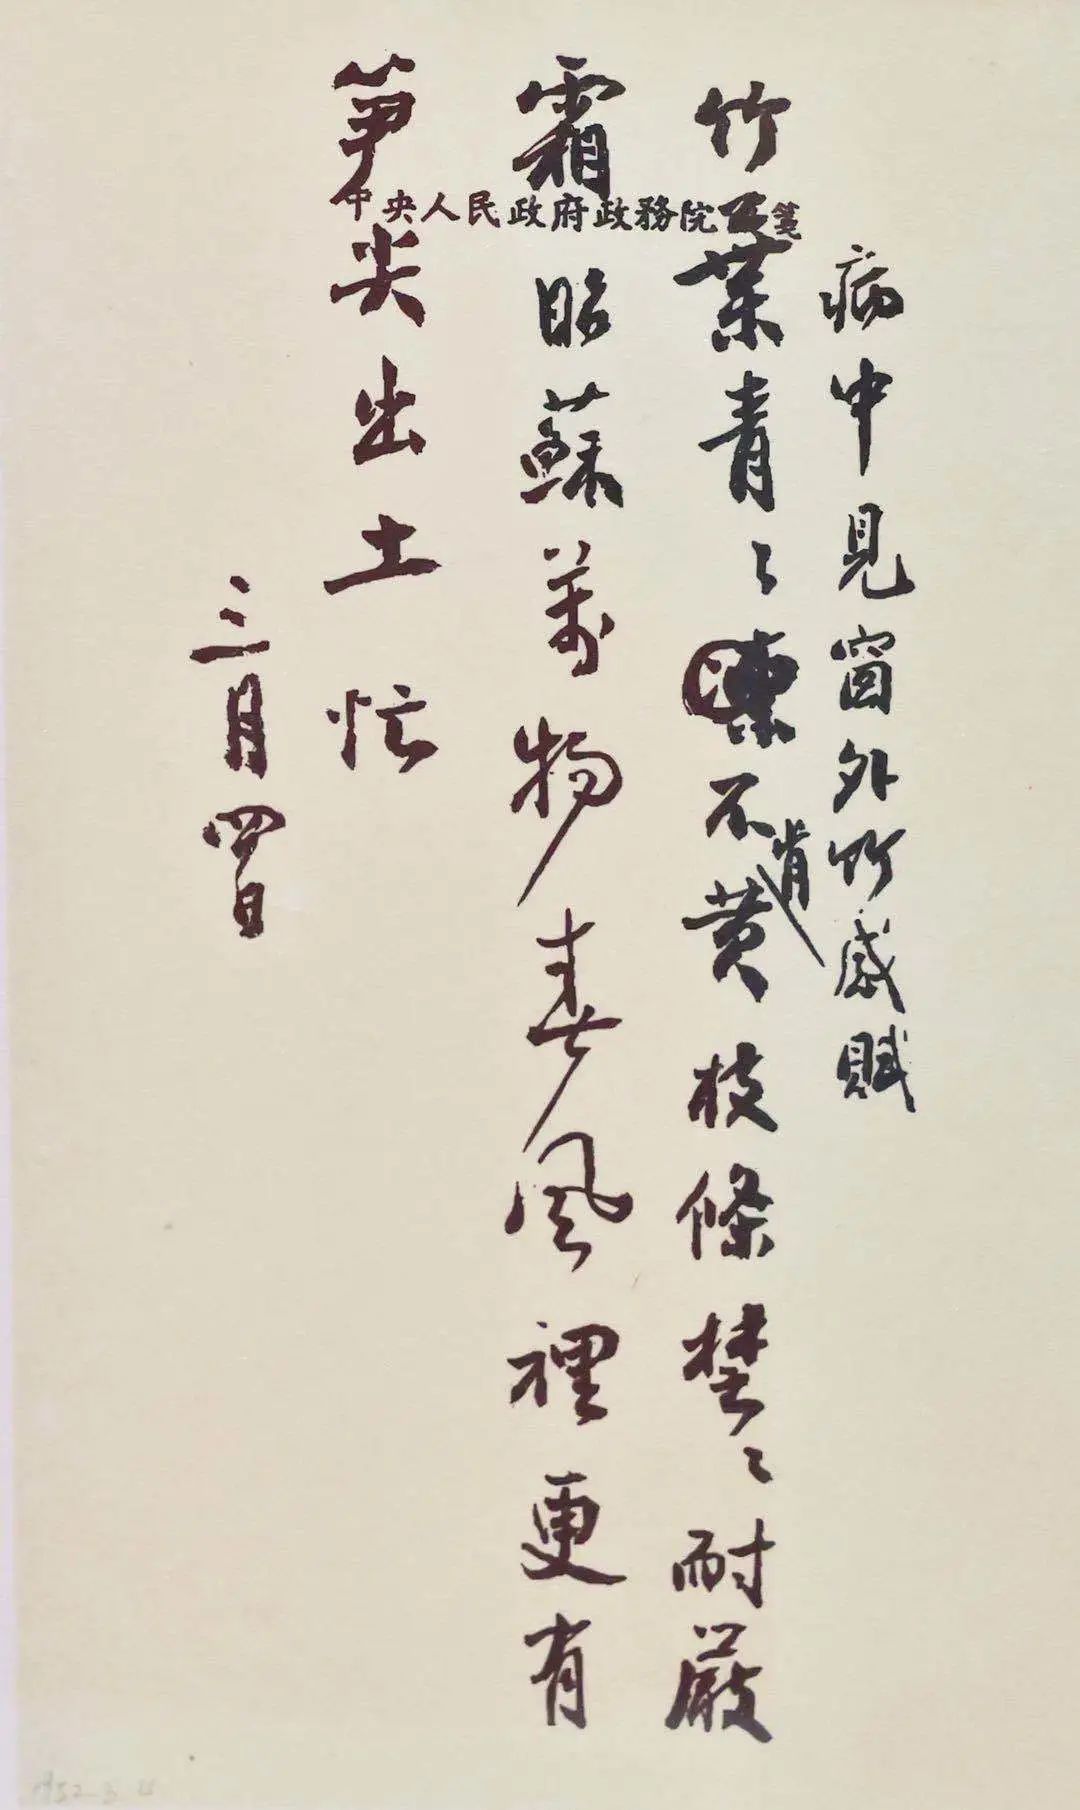 病中見窗外竹感賦
竹葉青〻不肯黄枝條楚〻耐嚴
霜昭蘇萬物春風裡更有
笋尖出土忙
三月四日
中央人民政府政務院箋